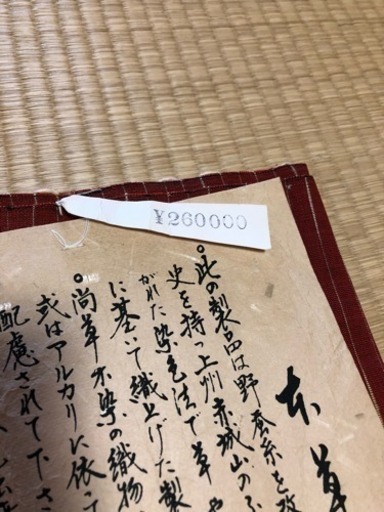 ¥260000
本草
。此の製品は野蚕糸を
史を持つ上州赤城山の
がれた染色法で草
に基いて織上げた製
。尚草木染の織物
或はアルカリに依っ
配慮されて下さ